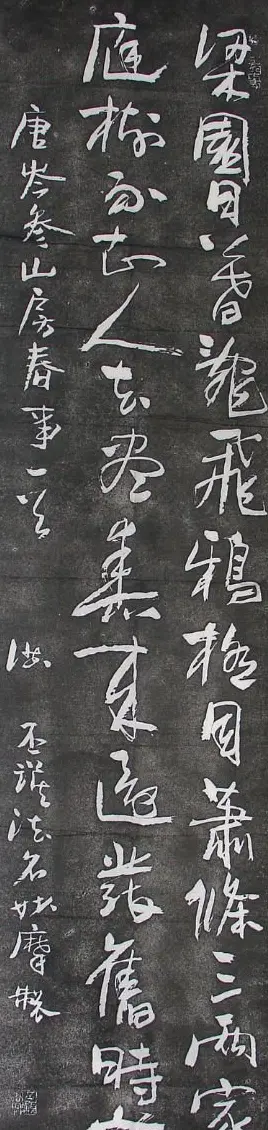 梁園日暮亂飛鴉極目蕭條三兩家
庭樹不知人去盡春來還發舊時
唐岑參山房春事一首 洪丕謨法名妙摩製